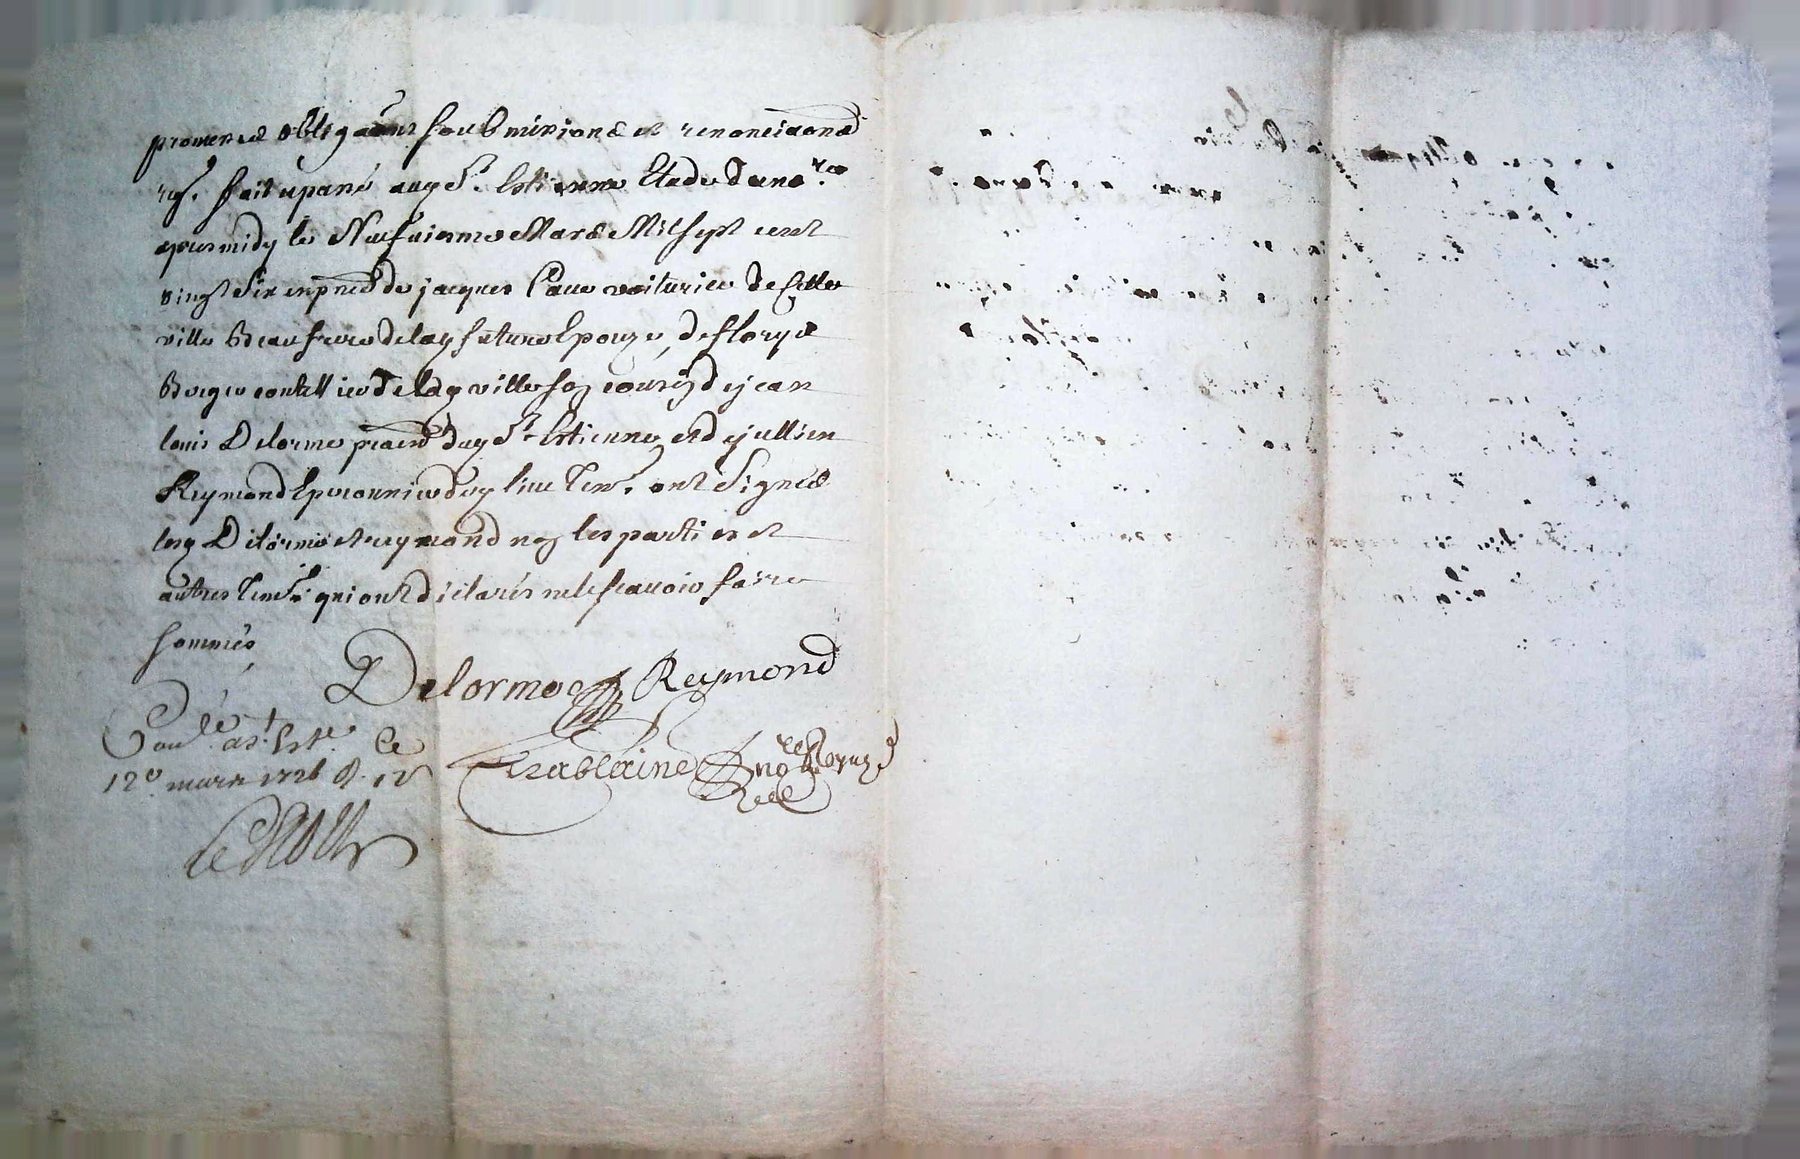 promesses obligaons soubmissions et renonciaons
rq. fait & passé aud St. Estienne Etude du no.re
apres midy le Neufviesme Mars Mil sept cent
vingt Six en pnce de jacques voiturier de cette
ville Beaufrere de lad future Epouze, de
Berger de lad ville son cousin et de jean
louis Delorme pratn. dud St. Estienne, et de jullien
Reymond Eperonnier dud lieu tesm. ont Signés
lesd Delorme et reymond non les parties et
autres tesm. qui ont déclarés ne le scavoir faire
sommés
Delorme Reymond
Con.lé a St. Est.ne le
12e. mars 1726 R. 12
no.re Royal